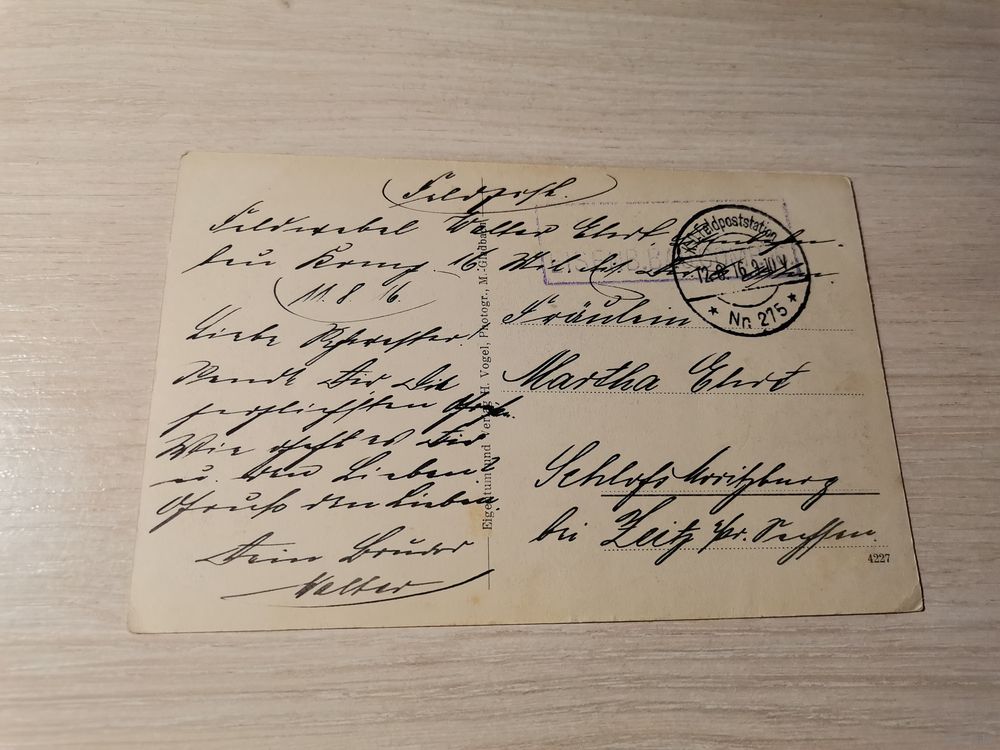 Feldpost.
Feldwebel Walter Ehrt.
Komp. 16
11.8.16.
Liebe Schwester!
Sendet Dir die
herzlichsten Grüße.
Wie geht es Dir
u. den Lieben?
Gruß den Lieben
Dein Bruder
Walter
Eigentum und Verlag H. Vogel, Photogr., M.-Gladbach
Feldpoststation
12.8.16. 9-10 V
* Nr. 215 *
Fräulein
Martha Ehrt
Schloß Moritzburg
bei Zeitz Pr. Sachsen.
4227